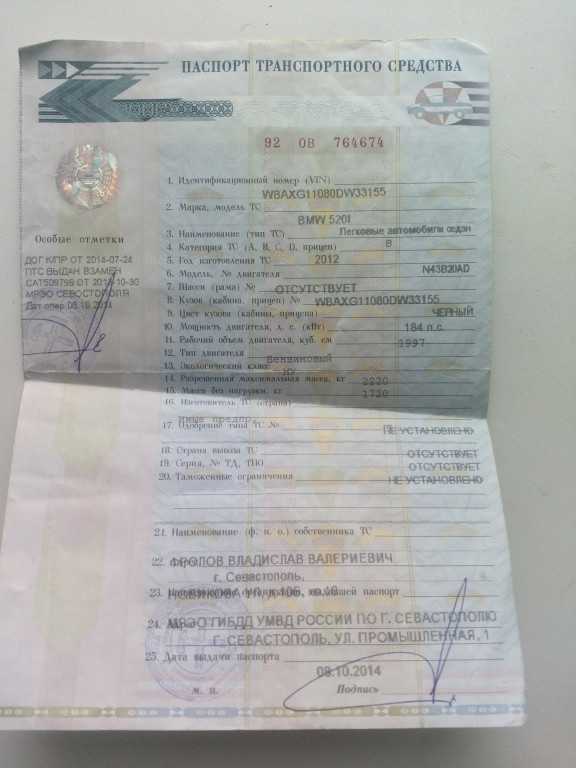 ПАСПОРТ ТРАНСПОРТНОГО СРЕДСТВА
92 ОВ 764674
1. Идентификационный номер (VIN) WBAXG11080DW33155
2. Марка, модель ТС BMW 520I
3. Наименование (тип ТС) Легковые автомобили седан
4. Категория ТС (А, В, С, D, прицеп) В
5. Год изготовления ТС 2012
6. Модель, № двигателя N43B20AD
7. Шасси (рама) № ОТСУТСТВУЕТ
8. Кузов (кабина, прицеп) № WBAXG11080DW33155
9. Цвет кузова (кабины, прицепа) ЧЕРНЫЙ
10. Мощность двигателя, л. с. (кВт) 184 л.с.
11. Рабочий объем двигателя, куб. см 1997
12. Тип двигателя Бензиновый
13. Экологический класс
14. Разрешенная максимальная масса, кг 2230
15. Масса без нагрузки, кг 1720
16. Изготовитель ТС (страна)
17. Одобрение типа ТС № НЕ УСТАНОВЛЕНО
18. Страна вывоза ТС ОТСУТСТВУЕТ
19. Серия, № ТД, ТПО ОТСУТСТВУЕТ
20. Таможенные ограничения НЕ УСТАНОВЛЕНО
21. Наименование (ф. и. о.) собственника ТС
22. ФРОЛОВ ВЛАДИСЛАВ ВАЛЕРИЕВИЧ
г. Севастополь,
23. выдавшей паспорт
24. МРЭО ГИБДД УМВД РОССИИ ПО Г. СЕВАСТОПОЛЮ
Г. СЕВАСТОПОЛЬ, УЛ. ПРОМЫШЛЕННАЯ, 1
25. Дата выдачи паспорта
08.10.2014
М. П. Подпись
Особые отметки
ДОГ К/ПР ОТ 2014-07-24
ПТС ВЫДАН ВЗАМЕН
САТ509796 ОТ 2013-10-30
МРЭО СЕВОСТОПОЛЯ
Дат опер 08.10.2014